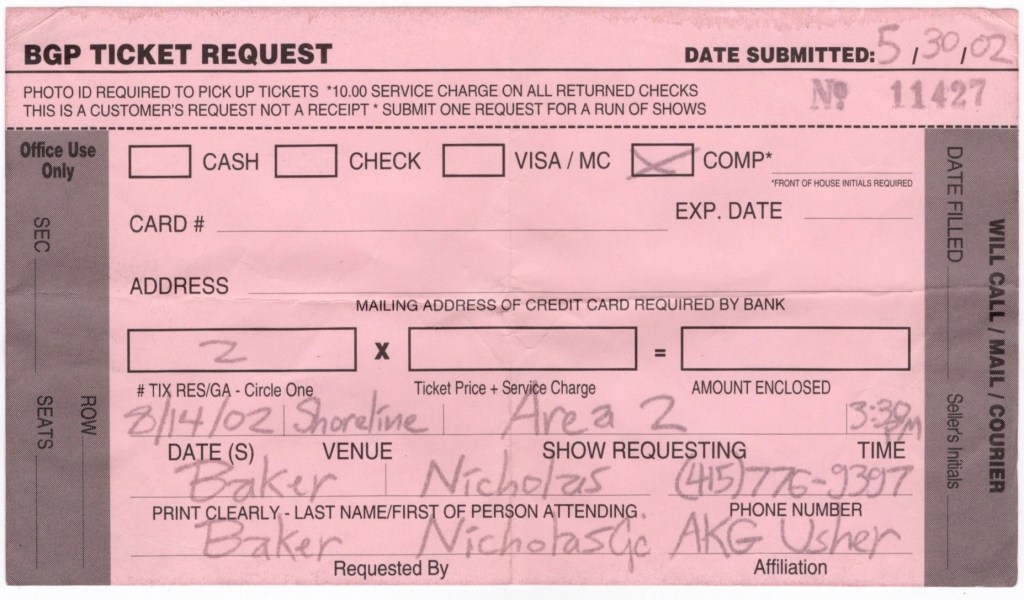 BGP TICKET REQUEST DATE SUBMITTED: 5/30/02
PHOTO ID REQUIRED TO PICK UP TICKETS *10.00 SERVICE CHARGE ON ALL RETURNED CHECKS
THIS IS A CUSTOMER'S REQUEST NOT A RECEIPT * SUBMIT ONE REQUEST FOR A RUN OF SHOWS
Nº 11427
Office Use
Only
SEC
ROW
SEATS
CASH CHECK VISA / MC COMP*
*FRONT OF HOUSE INITIALS REQUIRED
CARD # EXP. DATE
ADDRESS
MAILING ADDRESS OF CREDIT CARD REQUIRED BY BANK
2 X =
# TIX RES/GA - Circle One Ticket Price + Service Charge AMOUNT ENCLOSED
8/14/02 Shoreline Area 2 3:30 PM
DATE (S) VENUE SHOW REQUESTING TIME
Baker Nicholas (415)776-9397
PRINT CLEARLY - LAST NAME/FIRST OF PERSON ATTENDING PHONE NUMBER
Baker Nicholas AKG Usher
Requested By Affiliation
DATE FILLED
Seller's Initials
WILL CALL / MAIL / COURIER